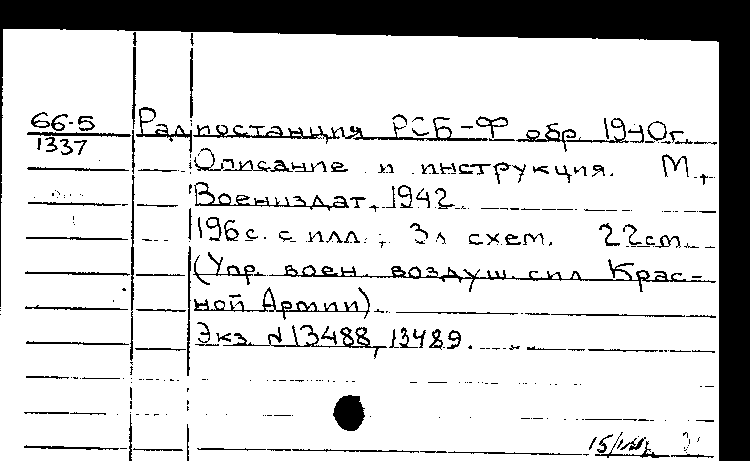 66-5
1337
Радиостанция РСБ-Ф обр. 1940г.
Описание и инструкция. М.,
Воениздат, 1942.
196с. с илл.; 3л схем. 22см.
(Упр. воен. воздуш. сил Крас=
ной Армии).
Экз. №13488, 13489.